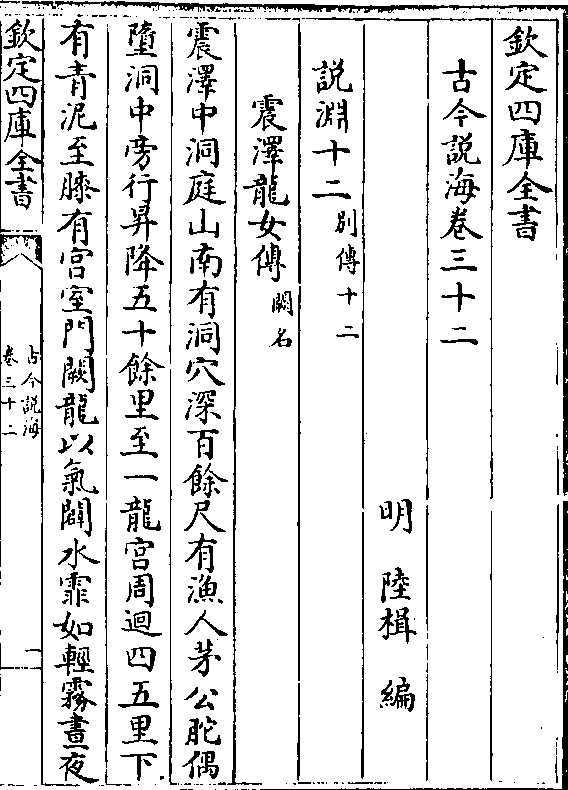 欽定四庫全書
古今説海卷三十二
明 陸楫 編
説淵十二 別傳十二
震澤龍女傳 闕名
震澤中洞庭山南有洞穴深百餘尺有漁人茅公䑨偶
墮洞中旁行昇降五十餘里至一龍宮周迴四五里下
有青泥至膝有宮室門闕龍以氣闢水霏如輕霧晝夜
欽定四庫全書
古今説海
卷三十二
一